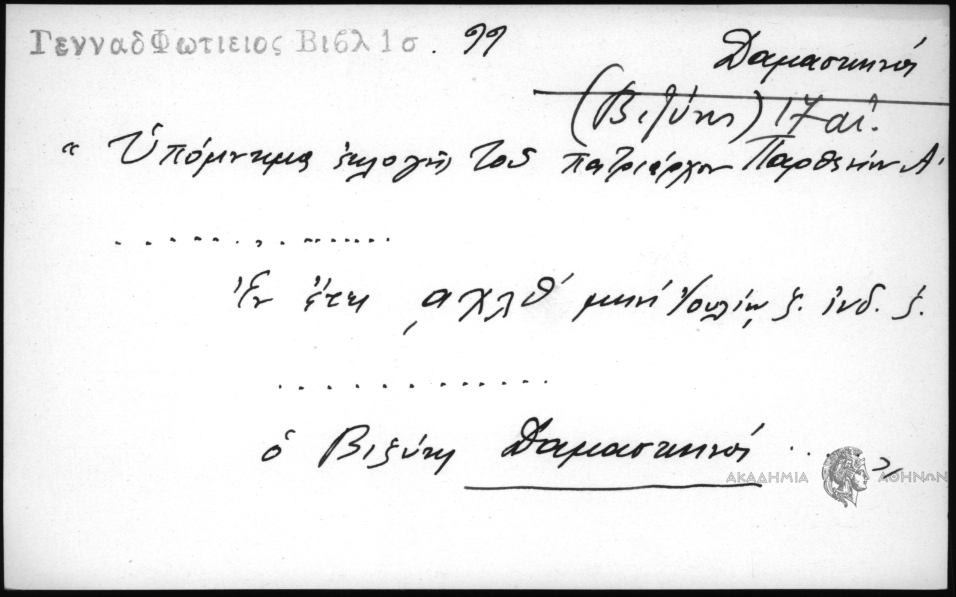 ΓενναδΦωτιειος Βιβλ 1σ. 99
Δαμασκηνός
(Βιζύης) 17 αἰ.
"Ὑπόμνημα ἐκλογῆς τοῦ πατριάρχου Παρθενίου Α'
Ἐν ἔτει ͵αχλθ' μηνὶ Ἰουλίῳ ξ. ἰνδ. ξ.
ὁ Βιζύης Δαμασκηνός
ΑΚΑΔΗΜΙΑ ΑΘΗΝΩΝ